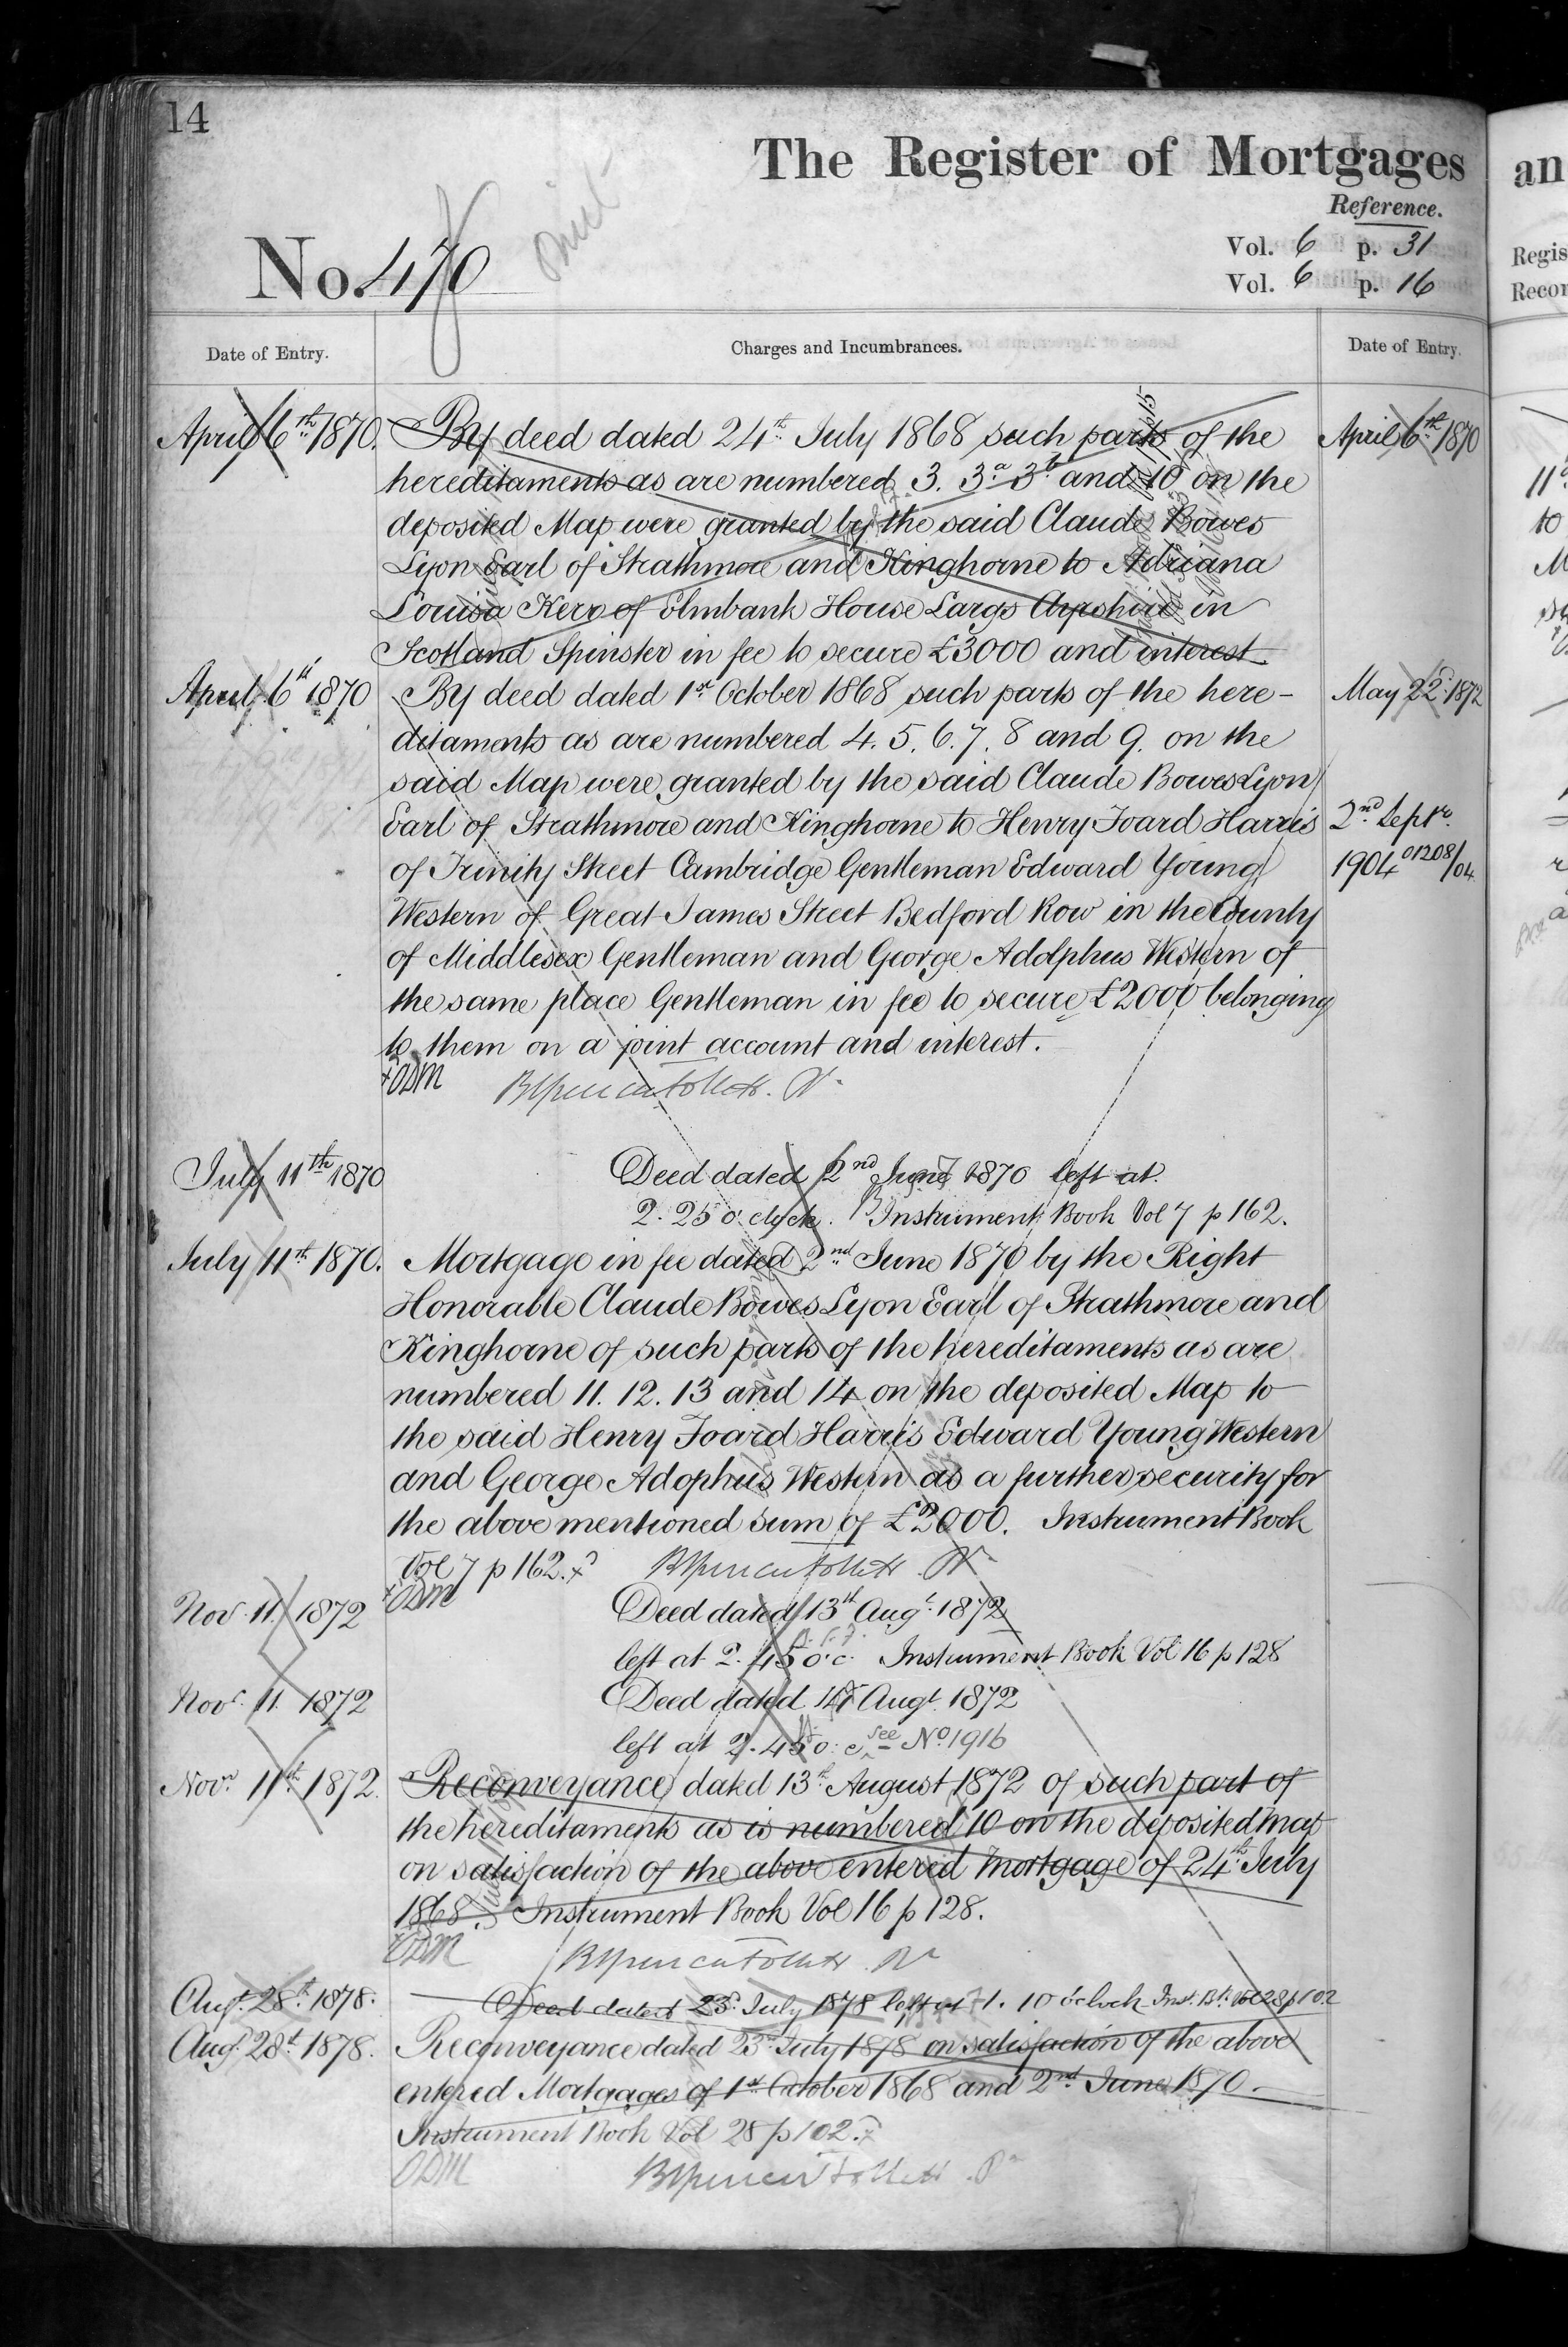 14
The Register of Mortgages
Reference.
No. 470
omit
Vol. 6 p. 31
Vol. 6 p. 16
Date of Entry.
Charges and Incumbrances.
Date of Entry.
April 6th 1870.
By deed dated 24th July 1868 such parts of the
hereditaments as are numbered 3. 3a 3b and 10 on the
deposited Map were granted by the said Claude Bowes
Lyon Earl of Strathmore and Kinghorne to Adriana
Louisa Kerr of Elmbank House Largs Ayrshire in
Scotland Spinster in fee to secure £3000 and interest.
April 6th 1870
By deed dated 1st October 1868 such parts of the here-
ditaments as are numbered 4. 5. 6. 7. 8 and 9. on the
said Map were granted by the said Claude Bowes Lyon
Earl of Strathmore and Kinghorne to Henry Foard Harris
of Trinity Street Cambridge Gentleman Edward Young
Western of Great James Street Bedford Row in the County
of Middlesex Gentleman and George Adolphus Western of
the same place Gentleman in fee to secure £2000 belonging
to them on a joint account and interest.
ODM
July 11th 1870
Deed dated 2nd June 1870 left at
2. 25 o'clock. Instrument Book Vol 7 p 162.
July 11th 1870.
Mortgage in fee dated 2nd June 1870 by the Right
Honorable Claude Bowes Lyon Earl of Strathmore and
Kinghorne of such parts of the hereditaments as are
numbered 11. 12. 13 and 14 on the deposited Map to
the said Henry Foard Harris Edward Young Western
and George Adophus Western as a further security for
the above mentioned sum of £2000. Instrument Book
Vol 7 p 162.
ODM
Nov. 11. 1872
Deed dated 13th Augt. 1872
left at 2. 45 o'c. Instrument Book Vol 16 p 128
Novr. 11. 1872
Deed dated 14 Augt. 1872
left at 2. 45 o: c, see No. 1916
Novr. 11th 1872.
Reconveyance dated 13th August 1872 of such part of
the hereditaments as is numbered 10 on the deposited Map
on satisfaction of the above entered Mortgage of 24th July
1868. Instrument Book Vol 16 p 128.
ODM
Augt. 28th 1878.
Deed dated 23d. July 1878 left at 1. 10 o'clock Inst. Bk. Vol 28 p 102
Aug. 28th 1878.
Reconveyance dated 23rd July 1878 on satisfaction of the above
entered Mortgages of 1st October 1868 and 2nd June 1870.
Instrument Book Vol 28 p 102.
ODM
April 6th 1870
May 22d. 1872
2nd Septr.
1904 01208/04
an
Regis
Recor